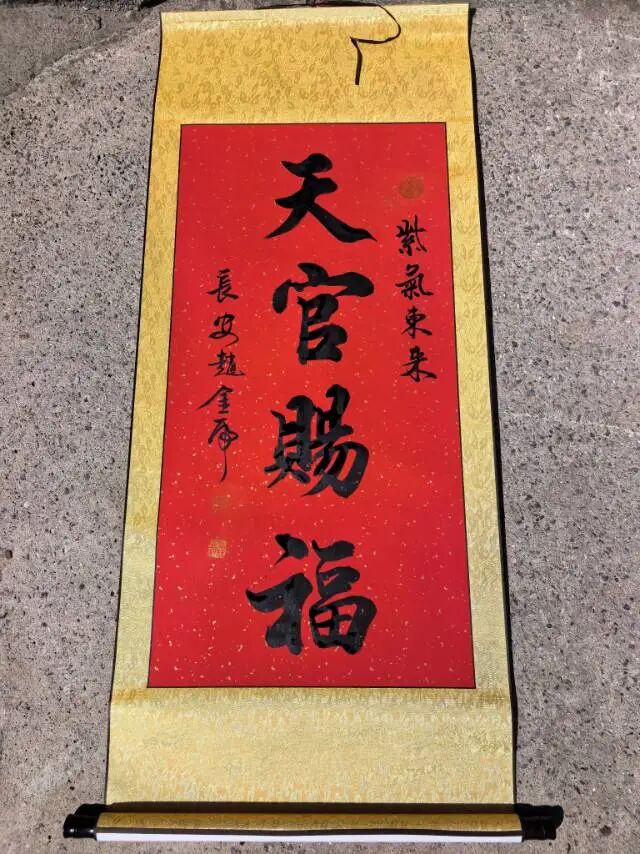 紫氣東来
天官賜福
長安趙金虎